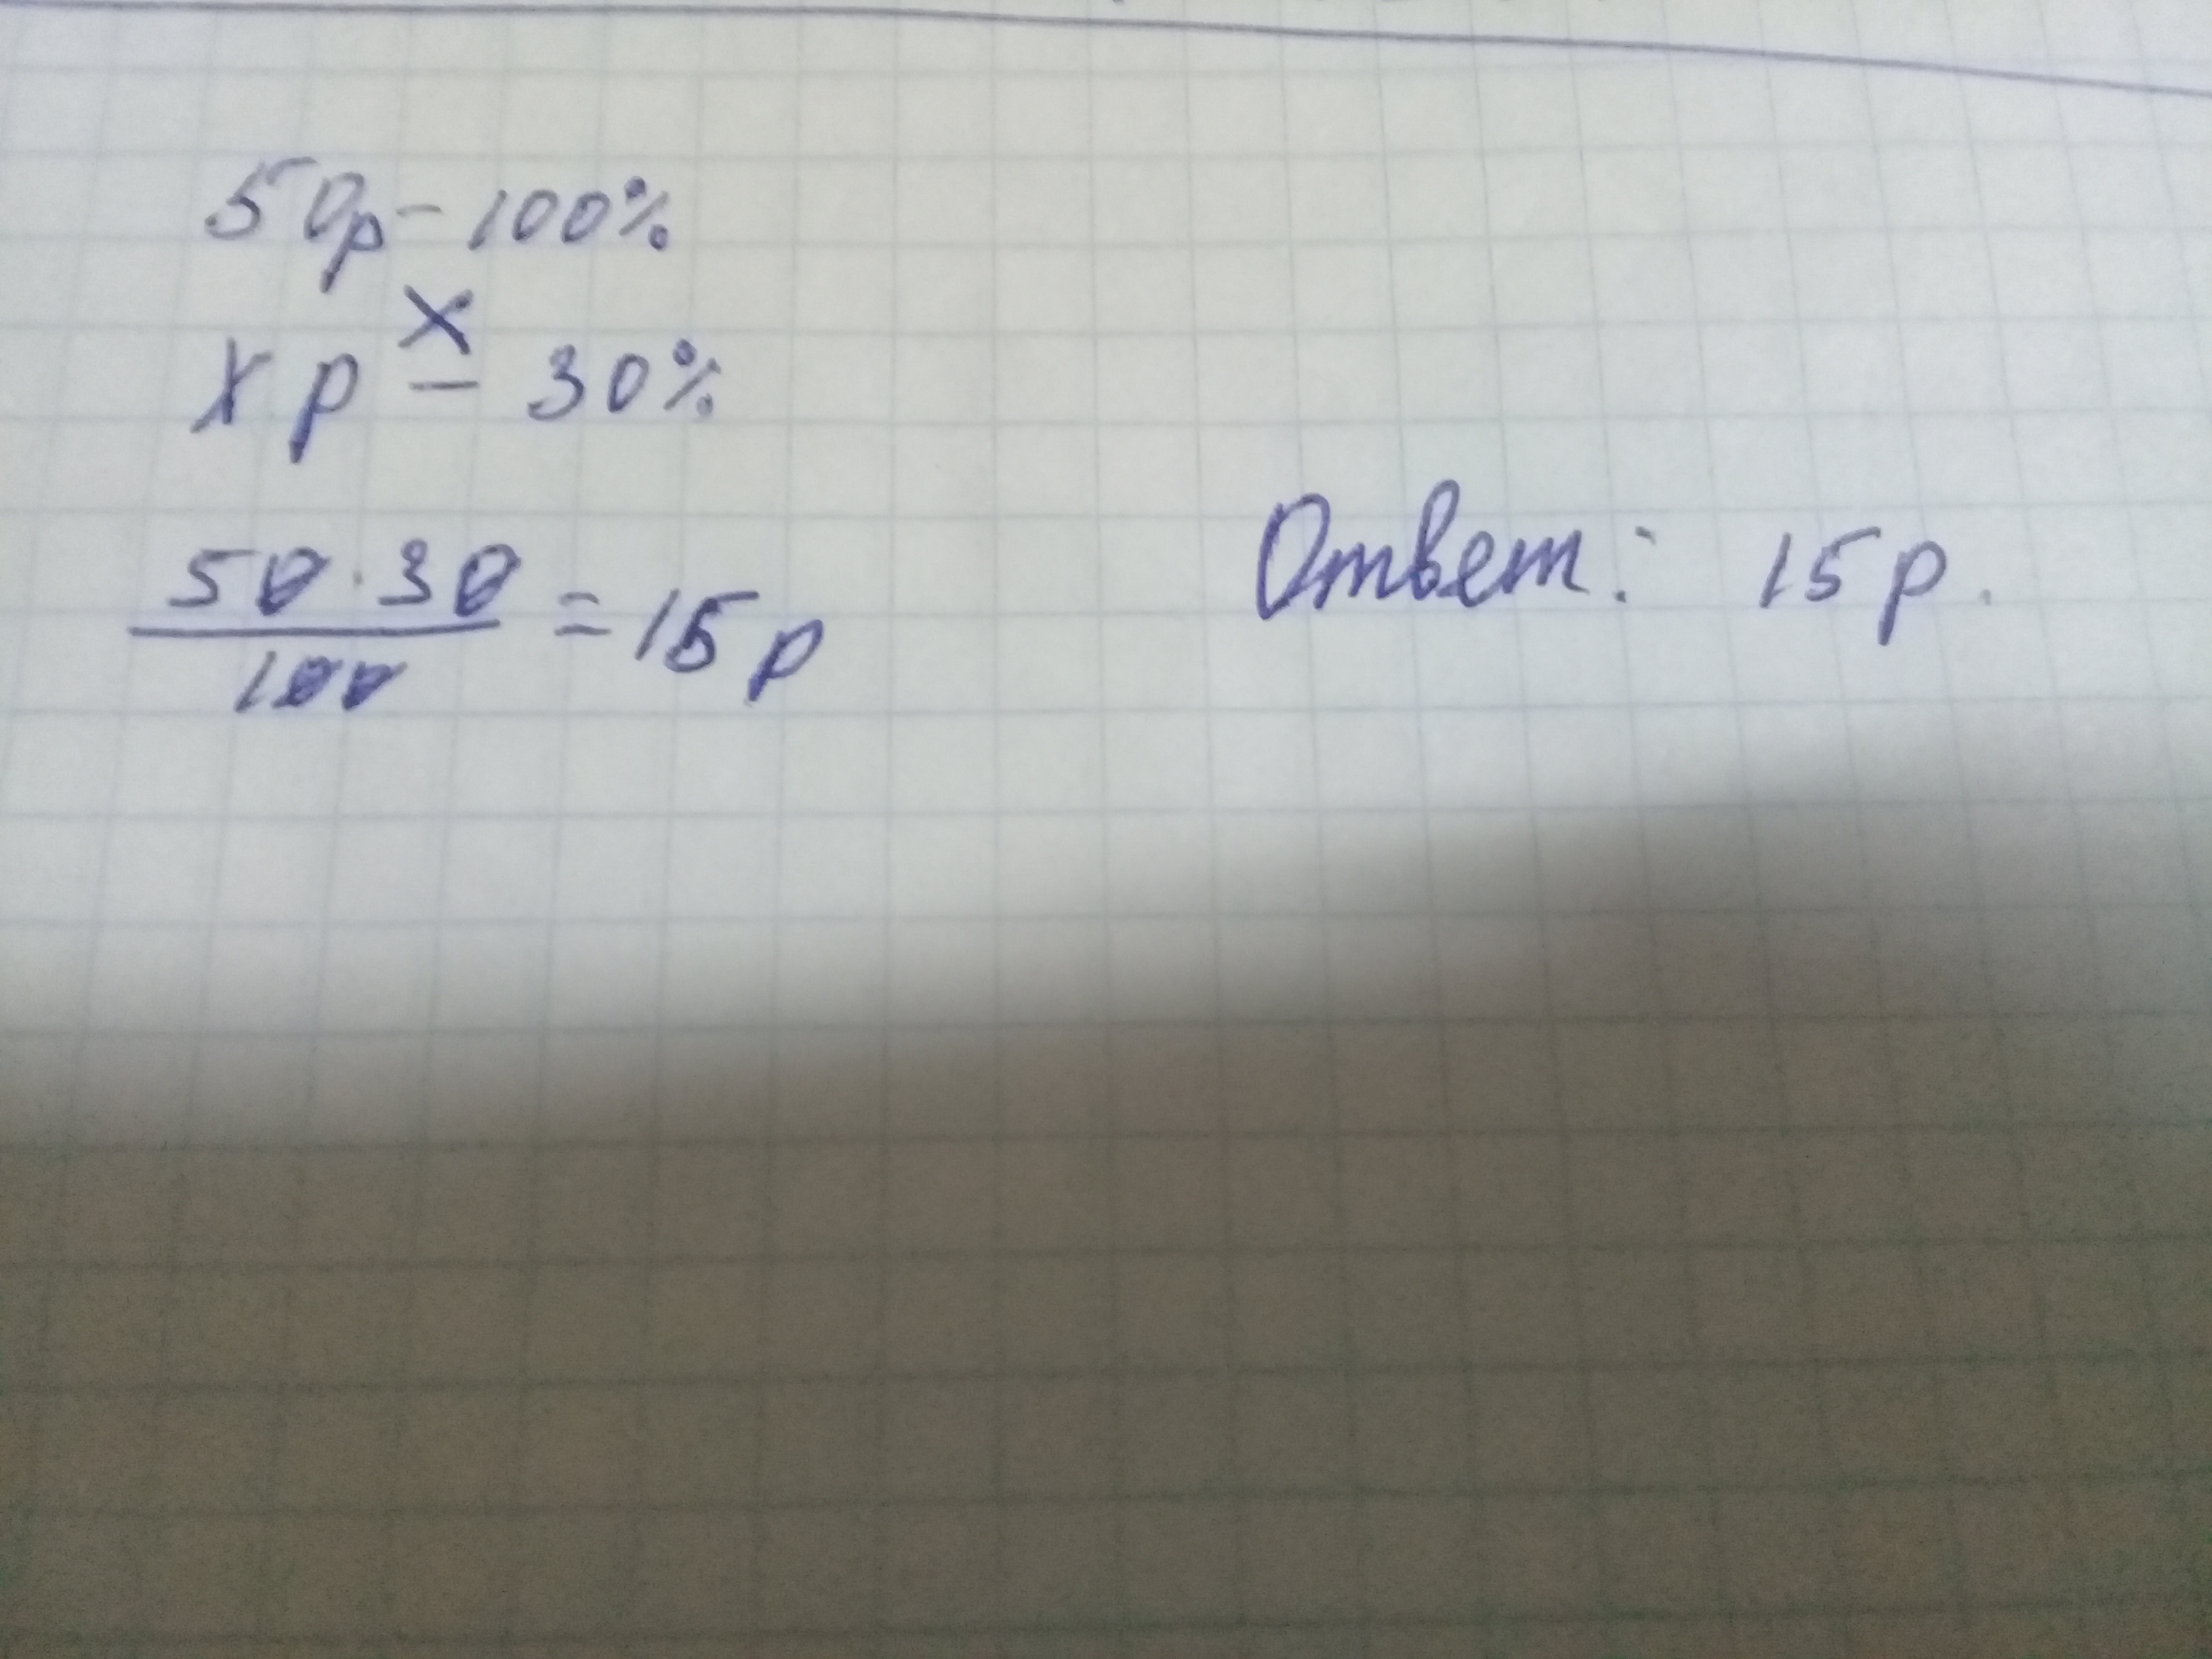 50р - 100%
х
х р - 30%
50 · 30 / 100 = 15 р
Ответ: 15 р.